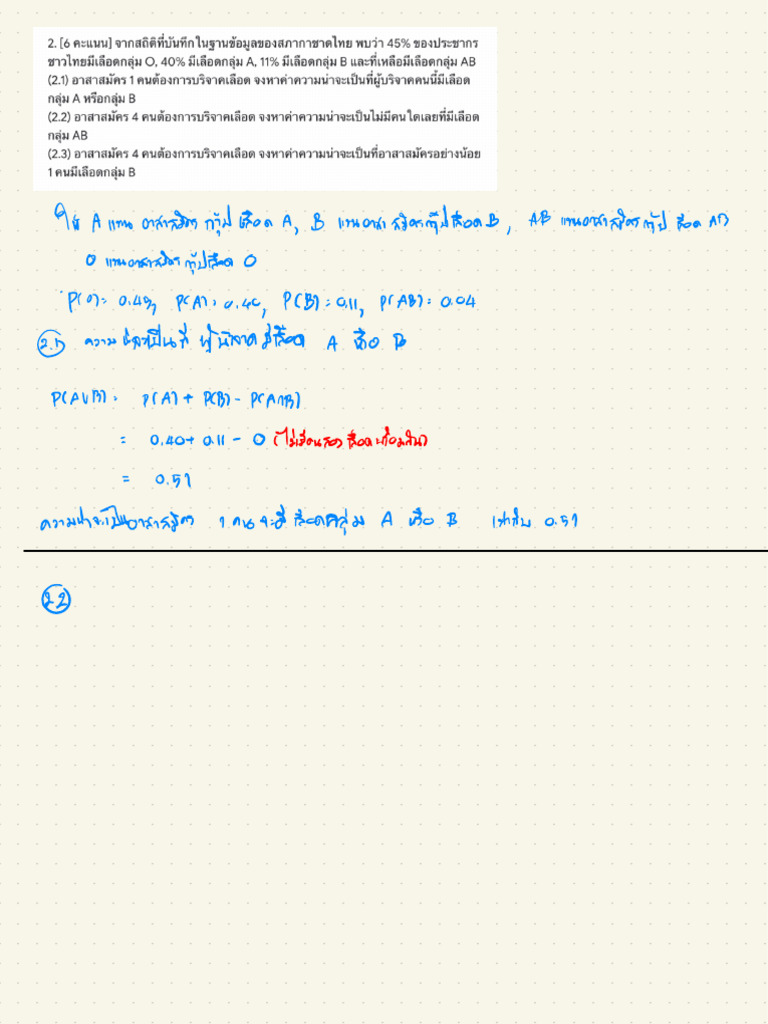 2. [6 คะแนน] จากสถิติที่บันทึกในฐานข้อมูลของสภากาชาดไทย พบว่า 45% ของประชากร
ชาวไทยมีเลือดกลุ่ม O, 40% มีเลือดกลุ่ม A, 11% มีเลือดกลุ่ม B และที่เหลือมีเลือดกลุ่ม AB
(2.1) อาสาสมัคร 1 คนต้องการบริจาคเลือด จงหาค่าความน่าจะเป็นที่ผู้บริจาคคนนี้มีเลือด
กลุ่ม A หรือกลุ่ม B
(2.2) อาสาสมัคร 4 คนต้องการบริจาคเลือด จงหาค่าความน่าจะเป็นไม่มีคนใดเลยที่มีเลือด
กลุ่ม AB
(2.3) อาสาสมัคร 4 คนต้องการบริจาคเลือด จงหาค่าความน่าจะเป็นที่อาสาสมัครอย่างน้อย
1 คนมีเลือดกลุ่ม B
ให้ A แทน อาสาสมัคร กรุ๊ป เลือด A, B แทนอาสาสมัครกรุ๊ปเลือด B, AB แทนอาสาสมัครกรุ๊ป เลือด AB
O แทนอาสาสมัครกรุ๊ปเลือด O
P(O) = 0.45, P(A) = 0.40, P(B) = 0.11, P(AB) = 0.04
2.1 ความ ที่ มีเลือด A หรือ B
P(A∪B) = P(A) + P(B) - P(A∩B)
= 0.40 + 0.11 - 0
= 0.51
ความน่าจะเป็นอาสาสมัคร 1 คน จะมี เลือดกลุ่ม A หรือ B เท่ากับ 0.51
2.2